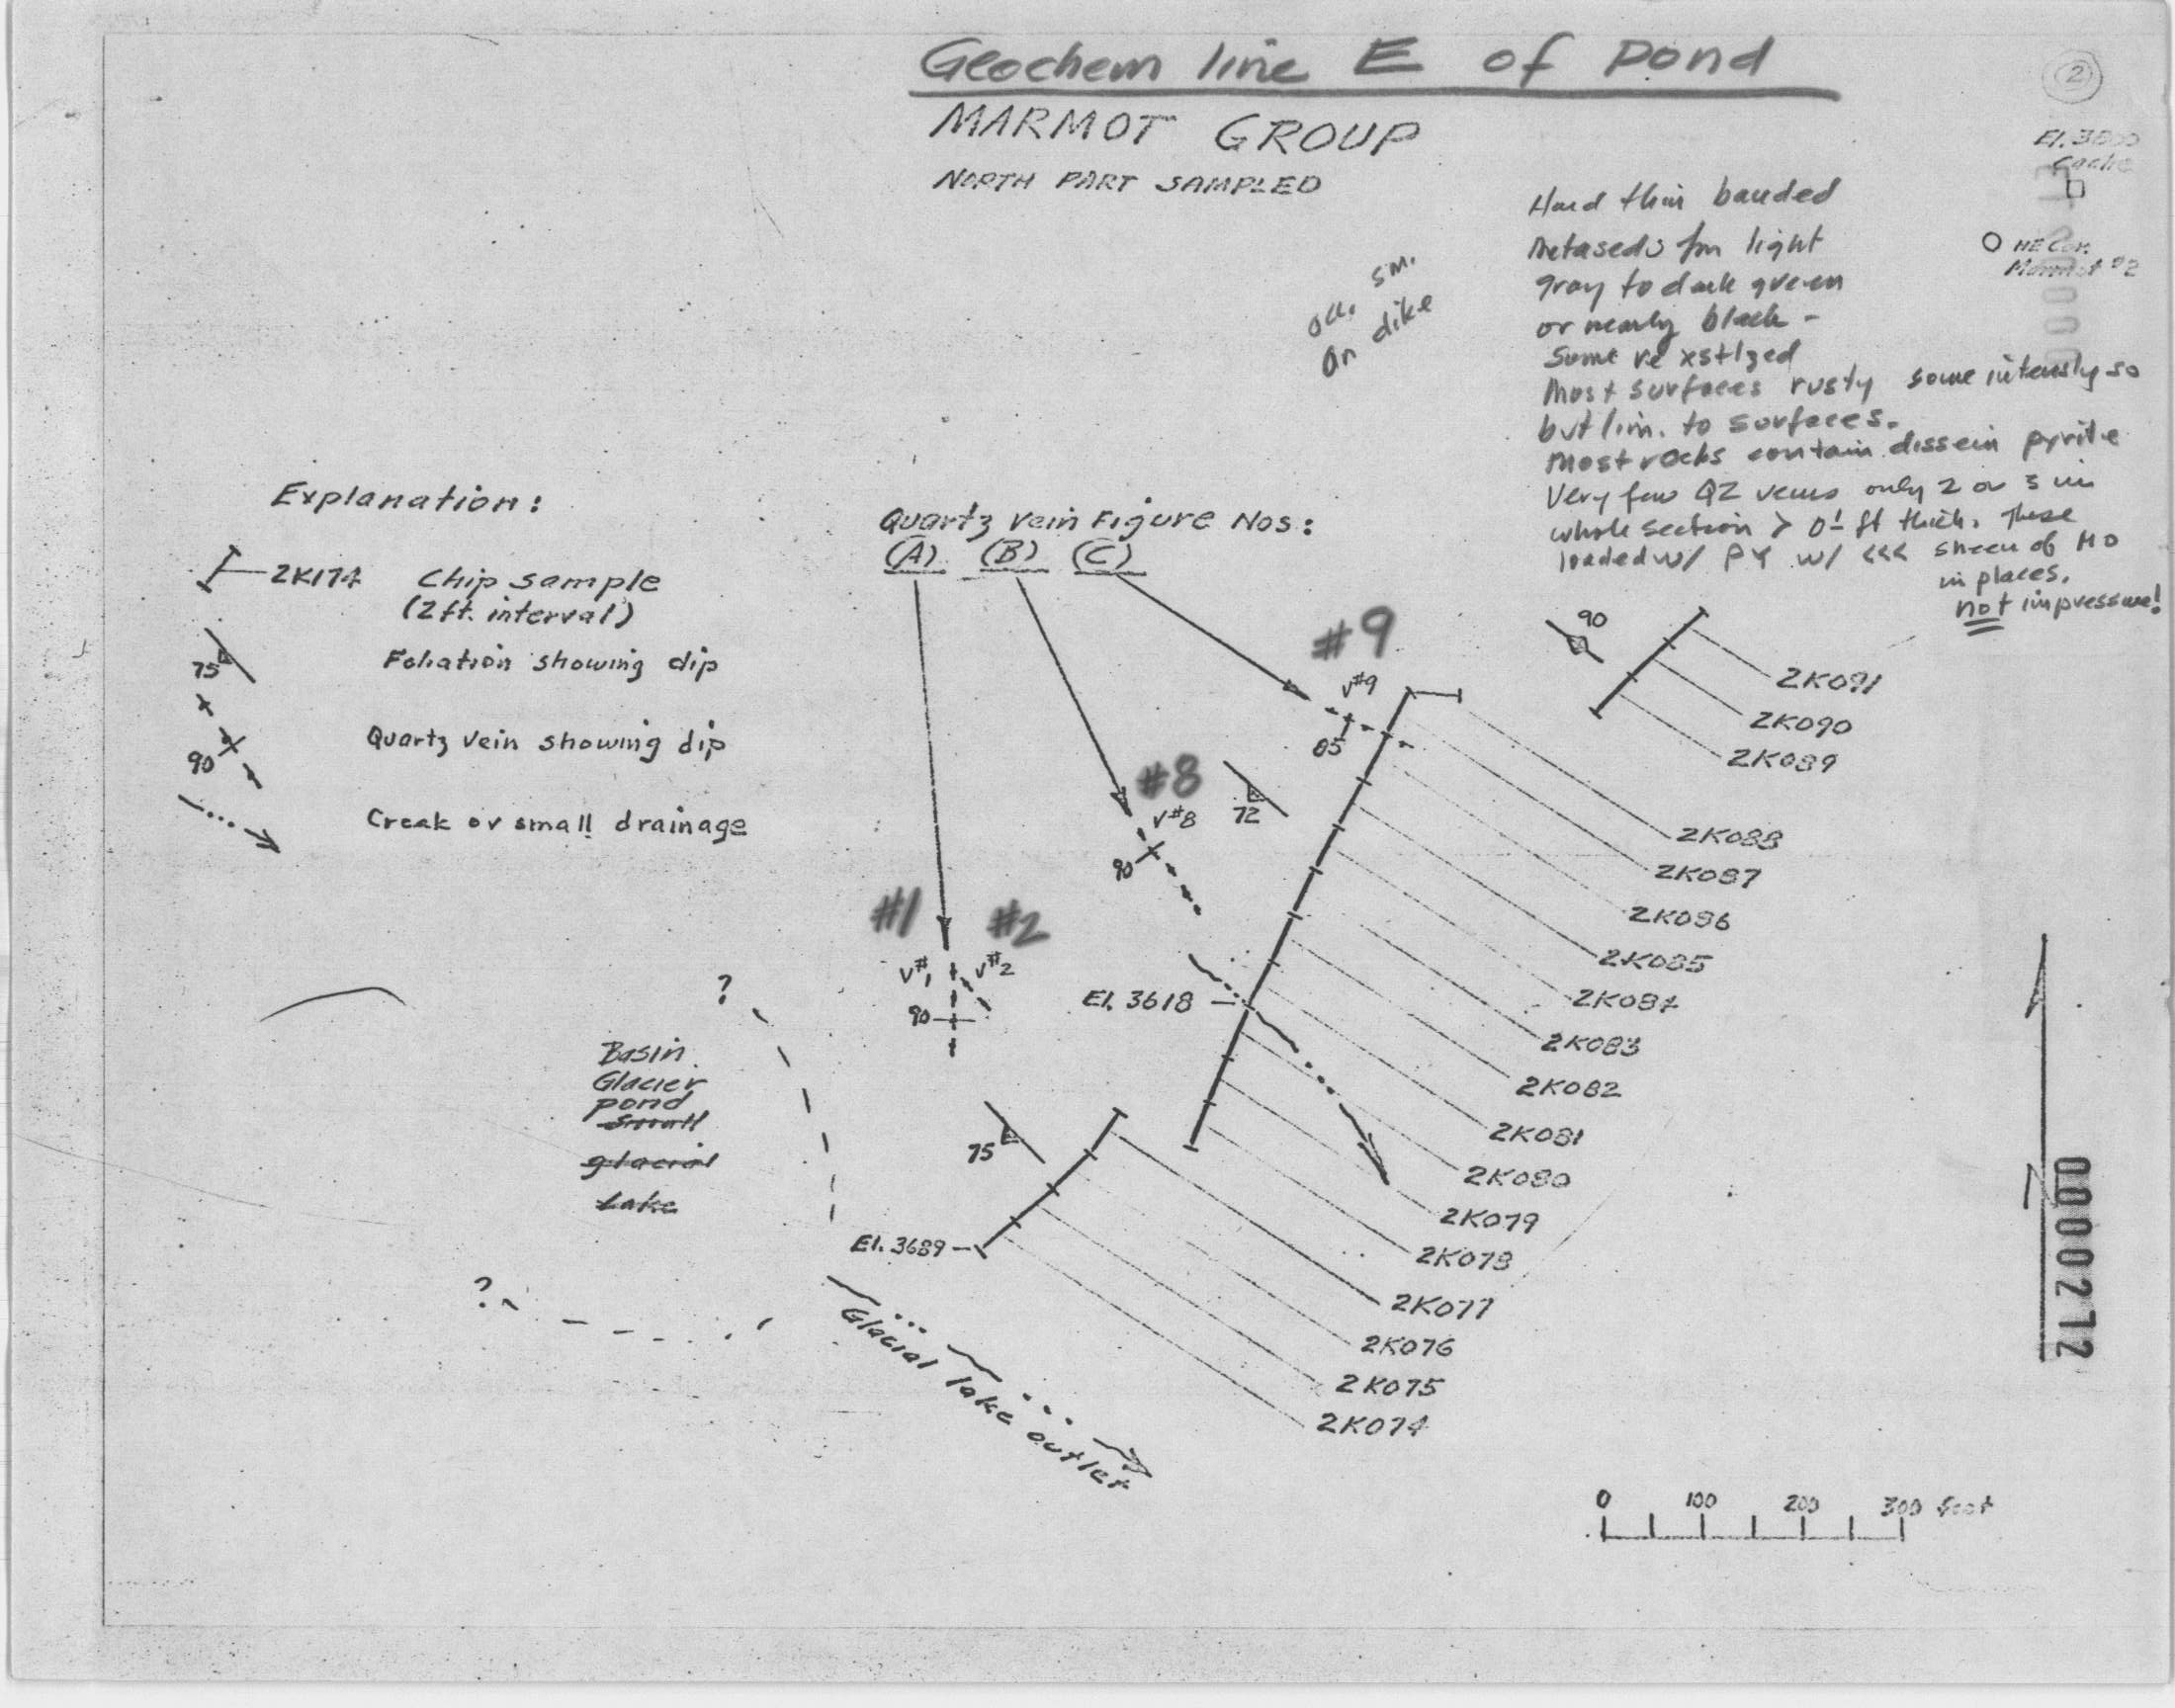 Geochem line E of Pond
MARMOT GROUP
NORTH PART SAMPLED
2
El. 3800
Cache
NE Cor.
Marmot #2
occ. sm.
an dike
Hard thin banded
metaseds fm light
gray to dark green
or nearly black -
Some re xstlzed
Most surfaces rusty some intensly so
but lim. to surfaces.
Most rocks contain dissem pyrite
Very few QZ veins only 2 or 3 in
whole section > 0.1 ft thick. These
loaded w/ PY w/ <<< sheen of MO
in places.
not impressive!
Explanation:
2K174 Chip sample
(2 ft. interval)
75 Foliation showing dip
90 Quartz vein showing dip
Creak or small drainage
Quartz vein Figure Nos:
(A) (B) (C)
#9
V#9
85
90
2K091
2K090
2K089
#8
V#8
90
72
2K088
2K087
2K086
2K085
2K084
2K083
2K082
2K081
2K080
2K079
2K078
2K077
2K076
2K075
2K074
#1 #2
V#1 V#2
90
El. 3618
?
Basin
Glacier
pond
Small
glacial
Lake
75
El. 3689
?
Glacial lake outlet
0000272
0 100 200 300 feet